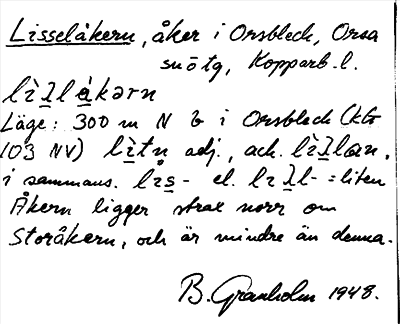 Lisselåkern, åker i Orsbleck, Orsa
snötg, Kopparb. l.
lìl̲lå̲kərn
Läge: 300 m N b i Orsbleck (ktr
103 NV) lìtn adj., ack. lìl̲lan,
i sammans. lis̲- el. lil̲l- = liten
Åkern ligger strax norr om
Storåkern, och är mindre än denna.
B. Granholm 1948.